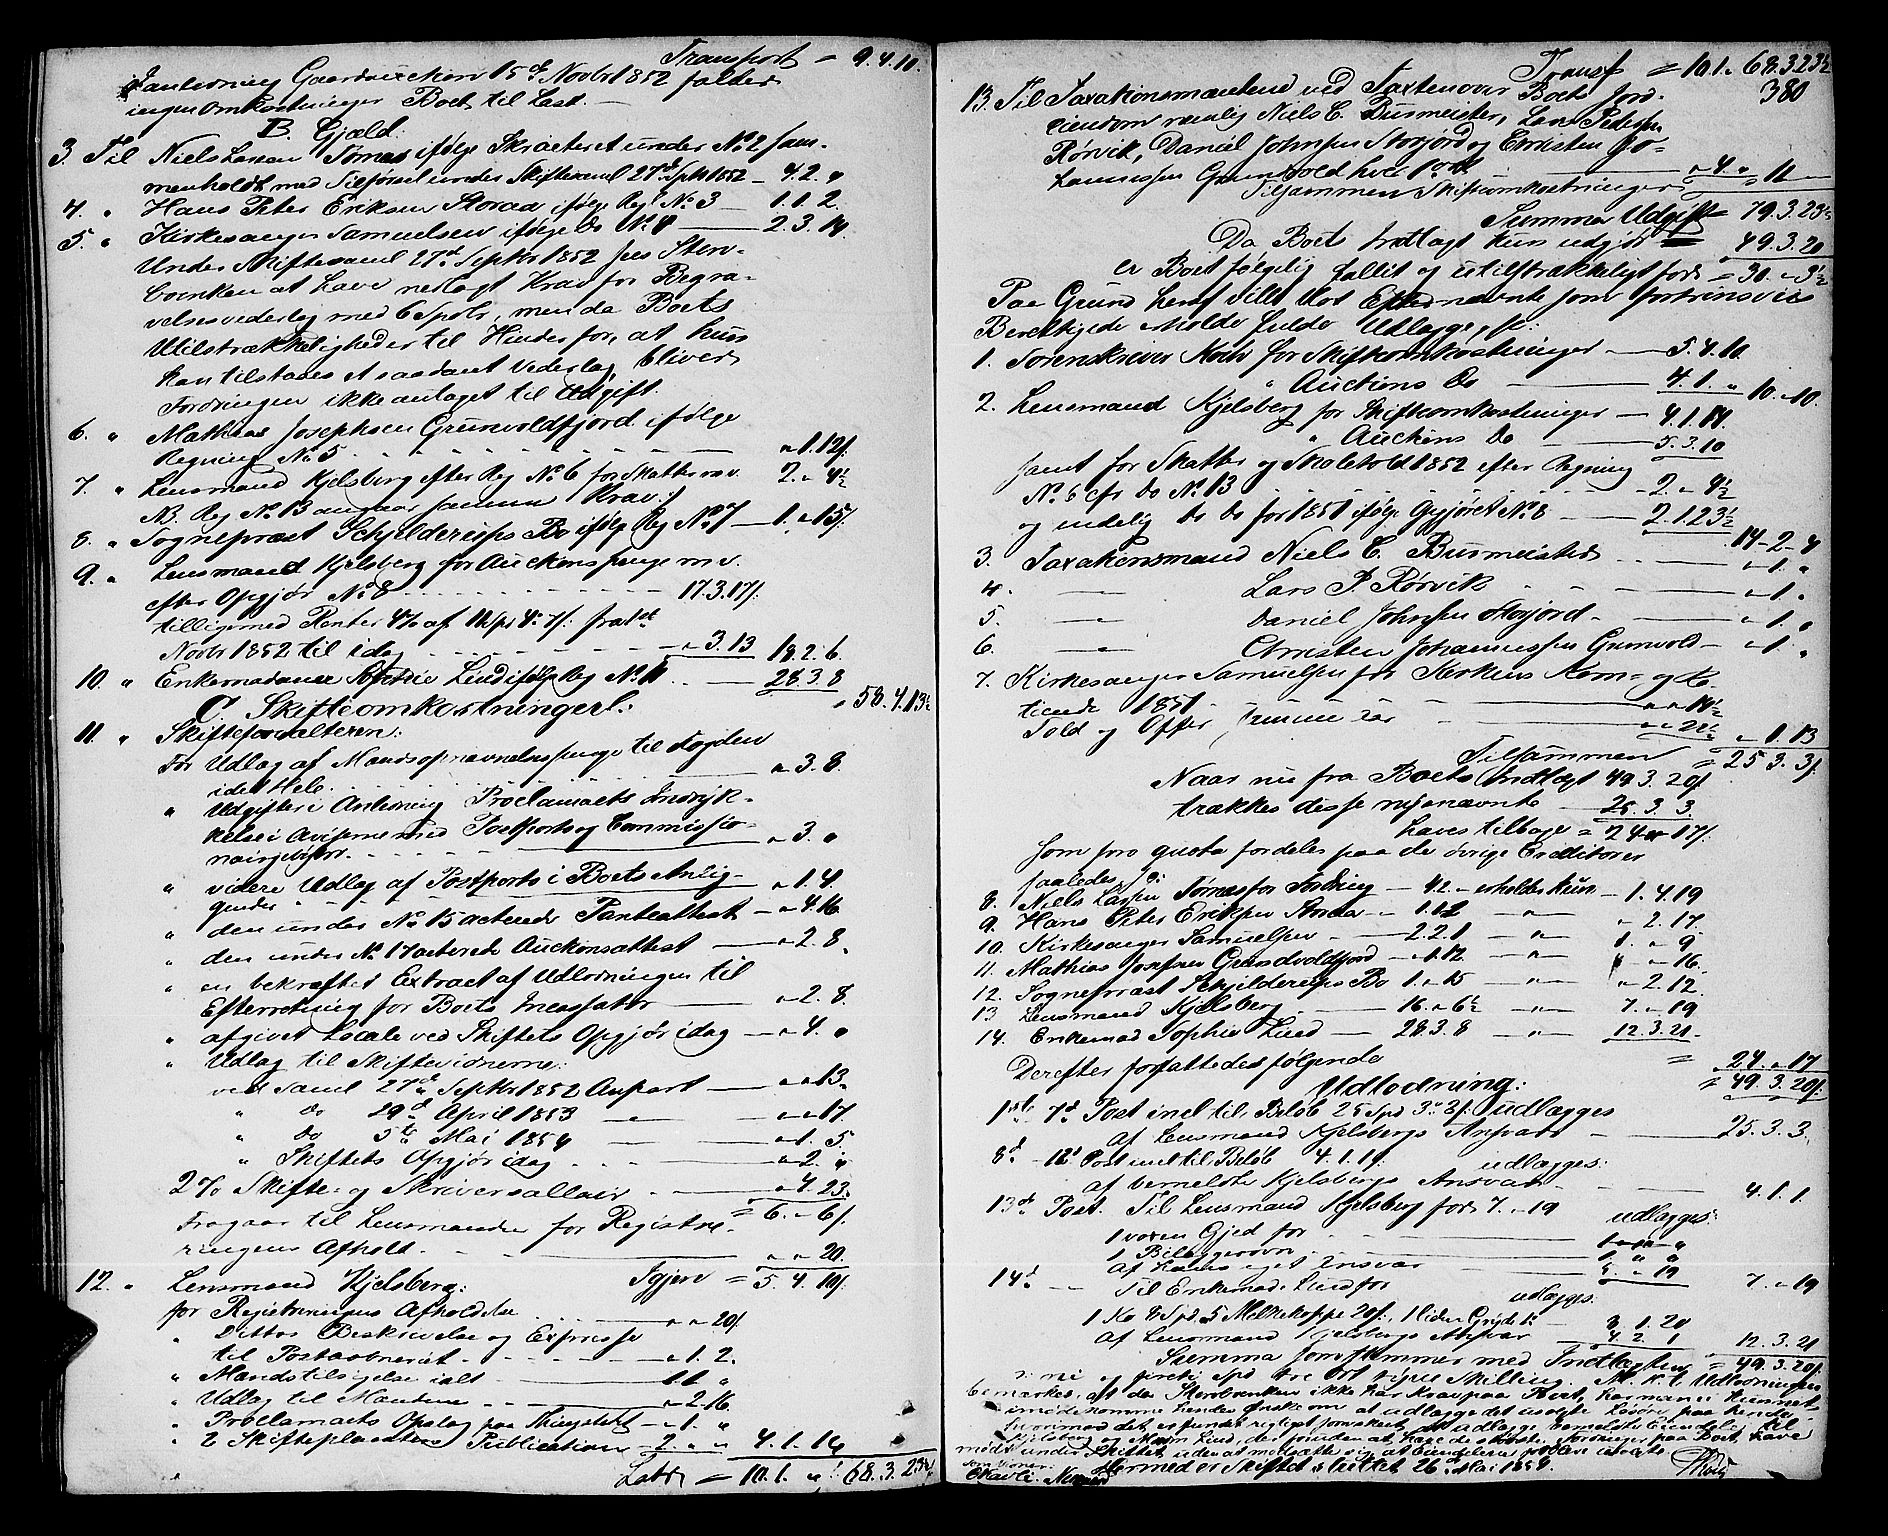 Transport = 9. 4. 10.
i anledning Gaardauction 15de Novbr 1852 falder
ingen Omkostninger Boet til Last. —
B. Gjæld:
3. Til Niels Larsen Tørnes ifølge Skrætteret under No 2 sam-
menholdt med Tilførsel under Skiftesaml 27de Septbr 1852 — 4. 2. "
4. " Hans Peter Eriksen Storaa ifølge Reg No 3 — 1. 1. 2.
5. " Kirkesanger Samuelsen ifølge Do No 4 — 2. 3. 14.
Under Skiftesaml 27de Septbr 1852 sees Sterv-
boenken at have nedlagt Krav for Begra-
velsesvederlag med 6 Spdlr, men da Boets
Utilstrækkeligheder til Hinder for, at hun
kan tilstaaes et saadant Vederlag, bliver
Fordringen ikke antaget til Udgift.
6. " Mathias Josephsen Grunvoldfjord ifølge
Regning No 5 " 1. 12/.
7. " Lensmand Kjelsberg efter Reg No 6 for Skatter m.v. 2. " 4½
NB. Reg No 13 angaar samme Krav./
8. " Sognepræst Schjelderups Bo ifølge Reg No 7 — 1. " 15/.
9. " Lensmand Kjelsberg for Auctionspenge m.v.
efter Opgjør No 8 17. 3. 17/.
tilligemed Renter 4% af
Novbr 1852 til idag — " 3. 13 18. 2. 6.
10. " Enkemadame Sophie Lund ifølge Reg No 11 — 28. 3. 8
C. Skifteomkostninger: " 58. 4. 13½
11. " Skifteforvalteren:
For Udlag af Mandsopnævnelsespenge til Fogden
i det Hele " 3. 8.
" Udgifter i Anledning Proclamaets Indryk-
kelse i Aviserne med Postporto og Commissio-
nairgebyhr " 3. "
" videre Udlag af Postporto i Boets Anlig-
gender " 1. 4.
" den under No 15 acterede Panteattest — " 4. 16
" den under No 17 acterede Auctionsattest — " 2. 8.
" en bekræftet Extract af Udlodningen til
Efterretning for Boets Incassator — " 2. 8.
" afgivet Locale ved Skiftets Opgjør idag — " 4. "
" Udlag til Skiftevidnerne:
ved Saml 27de Septbr 1852 Anpart — " " 13.
" Do 29de April 1853 — " " 17.
" Do 5te Mai 1854 — " 1. 5.
" Skiftets Opgjør idag " 2. "
2% Skifte- og Skriversallair — " 4. 23.
= 6. " 6/.
Fragaar til Lensmanden for Registre-
ringens Afhold " " 20.
Igjen = 5. 4. 10/.
12. " Lensmand Kjelsberg:
for Registreringens Afholdelse " " 20/
" Dettos Beskrivelse og Expresse
til Postaabneriet " 1. 2.
" Mandstilsigelse ialt 1 1 "
" Udlag til Mændene " 2. 16
" Proclamaets Opslag paa Thingstedet — " 1. "
" 2 Skifteplacaters Publication 2. " " 4. 1. 14
Latus = 10. 1. " / 68. 3. 23½
Transp = 10. 1. " 68. 3. 23½
13. Til Taxationsmændene ved Taxten over Boets Jord-
eiendom nemlig Niels C. Busmeister, Lars Pedersen
Rørvik, Daniel Johnsen Storjord og Christen Jo-
hannessen Grunvold hver 1 ort " 4. "
Tilsammen Skifteomkostninger = 11 —
Summa Udgift = 79. 3. 23½
Da Boets Indtægt kun udgjør = 49. 3. 20
er Boet følgelig fallit og utilstrækkeligt for = 30. " 3½
Paa Grund heraf ville blot Efternævnte som fortrinsviis
Berettigede erholde fulde Udlægge, s:
1. Sorenskriver Koch for Skifteomkostninger — 5. 4. 10
" Auctions Do — 4. 1. " 10. " 10.
2. Lensmand Kjelsberg for Skifteomkostninger — 4. 1. 14.
" Auctions Do — 5. 3. 10
samt for Skatter og Skolehold 1852 efter Regning
No 6 cfr Do No 13 2. " 4½
og endelig Do Do for 1851 ifølge Opgjøret No 8 — 2. 1. 23½
14 — 2 — 4
3. Taxationsmand Niels C. Busmeister " 1. "
4. — Lars P. Rørvik " 1. "
5. — Daniel Johnsen Storjord " 1. "
6. — Christen Johannessen Grunvold — " 1. "
7. Kirkesanger Samuelsen for Kirkens Korn- og Ko-
tiende 1851 " " 14½
Told og Offer samme Aar " " 22½ " 1. 13
Tilsammen = 25. 3. 3/.
Naar nu fra Boets Indtægt 49. 3. 20/
trækkes disse nysnævnte — 25. 3. 3.
haves tilbage = 24 " 17/.
som pro quota fordeles paa de øvrige Creditorer
saaledes, s:
8. Niels Larsen Tørnes for Fordring — 4. 2. — erholder kun — 1. 4. 19
9. Hans Peter Eriksen Storaa — 1. 1. 2 — " — " 2. 17.
10. Kirkesanger Samuelsen — 2. 2. 1 — " — 1. " 9
11. Mathias Josefsen Grundvoldfjord — " 1. 12 — " — " " 16.
12. Sognepræst Schjelderups Bo 1. " 15 — " — " 2. 12.
13 Lensmand Kjelsberg — 16. " 6½ — " — 7. " 19
14. Enkemad Sophie Lund — 28. 3. 8 — " — 12. 3. 21.
= 24. " 17
Derefter forfattedes følgende = 49. 3. 20/.
Udlodning:
1ste — 7de Post incl til Beløb 25 Spd 3 " 3/. udlægges
af Lensmand Kjelsbergs Ansvar — 25. 3. 3.
8de — 12te Post incl til Beløb 4. 1. 1/. udlægges:
af bemeldte Kjelsbergs Ansvar — 4. 1. 1
13de Post. Til Lensmand Kjelsberg for 7. " 19 udlægges:
1 voxen Gjed for 1 " "
1 Bilæggerovn 1 " "
af hans eget Ansvar 5. " 19
7. " 19
14de — Til Enkemad Lund for udlægges:
1 Ko 8 Spd, 5 Melkekopper 20/., 1 liden Gryde 1 " — 8. 1. 20
af Lensmand Kjelsbergs Ansvar 4. 2. 1 12. 3. 21
Summa som stemmer med Indtægten = 49. 3. 20/.
ni og firti Spd tre Ort tyve Skilling. M. H. t. Udlodningen
bemærkes, at da Stervboenken ikke har Krav paa Boet,
Hermed er Skiftet sluttet 26de Mai 1854.